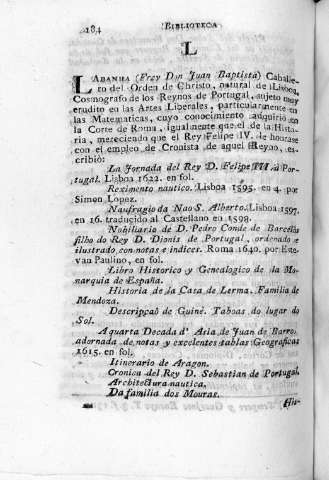 184 BIBLIOTECA
L
LABANHA (Frey Don Juan Baptista) Caballe-
ro del Orden de Christo, natural de Lisboa,
Cosmografo de los Reynos de Portugal, sujeto muy
erudito en las Artes Liberales, particularmente en
las Matematicas, cuyo conocimiento adquirio en
la Corte de Roma, igualmente que el de la Histo-
ria, mereciendo que el Rey Felipe IV. le honrase
con el empleo de Cronista de aquel Reyno, es-
cribiò:
La Jornada del Rey D. Felipe III à Por-
tugal. Lisboa 1622. en fol.
Reximento nautico. Lisboa 1595. en 4. por
Simon Lopez.
Naufragio da Nao S. Alberto. Lisboa 1597.
en 16. traducido al Castellano en 1598.
Nobiliario de D. Pedro Conde de Barcellos
filho do Rey D. Dionis de Portugal, ordenado e
ilustrado con notas e indices. Roma 1640. por Este-
van Paulino, en fol.
Libro Historico y Genealogico de la Mo-
narquia de España.
Historia de la Casa de Lerma. Familia de
Mendoza.
Descripçaõ de Guinè. Taboas do lugar do
Sol.
A quarta Decada d' Asia de Juan de Barro,
adornada de notas y excelentes tablas Geograficas
1615. en fol.
Itinerario de Aragon.
Cronica del Rey D. Sebastian de Portugal.
Architectura nautica.
Da familia dos Mouras.